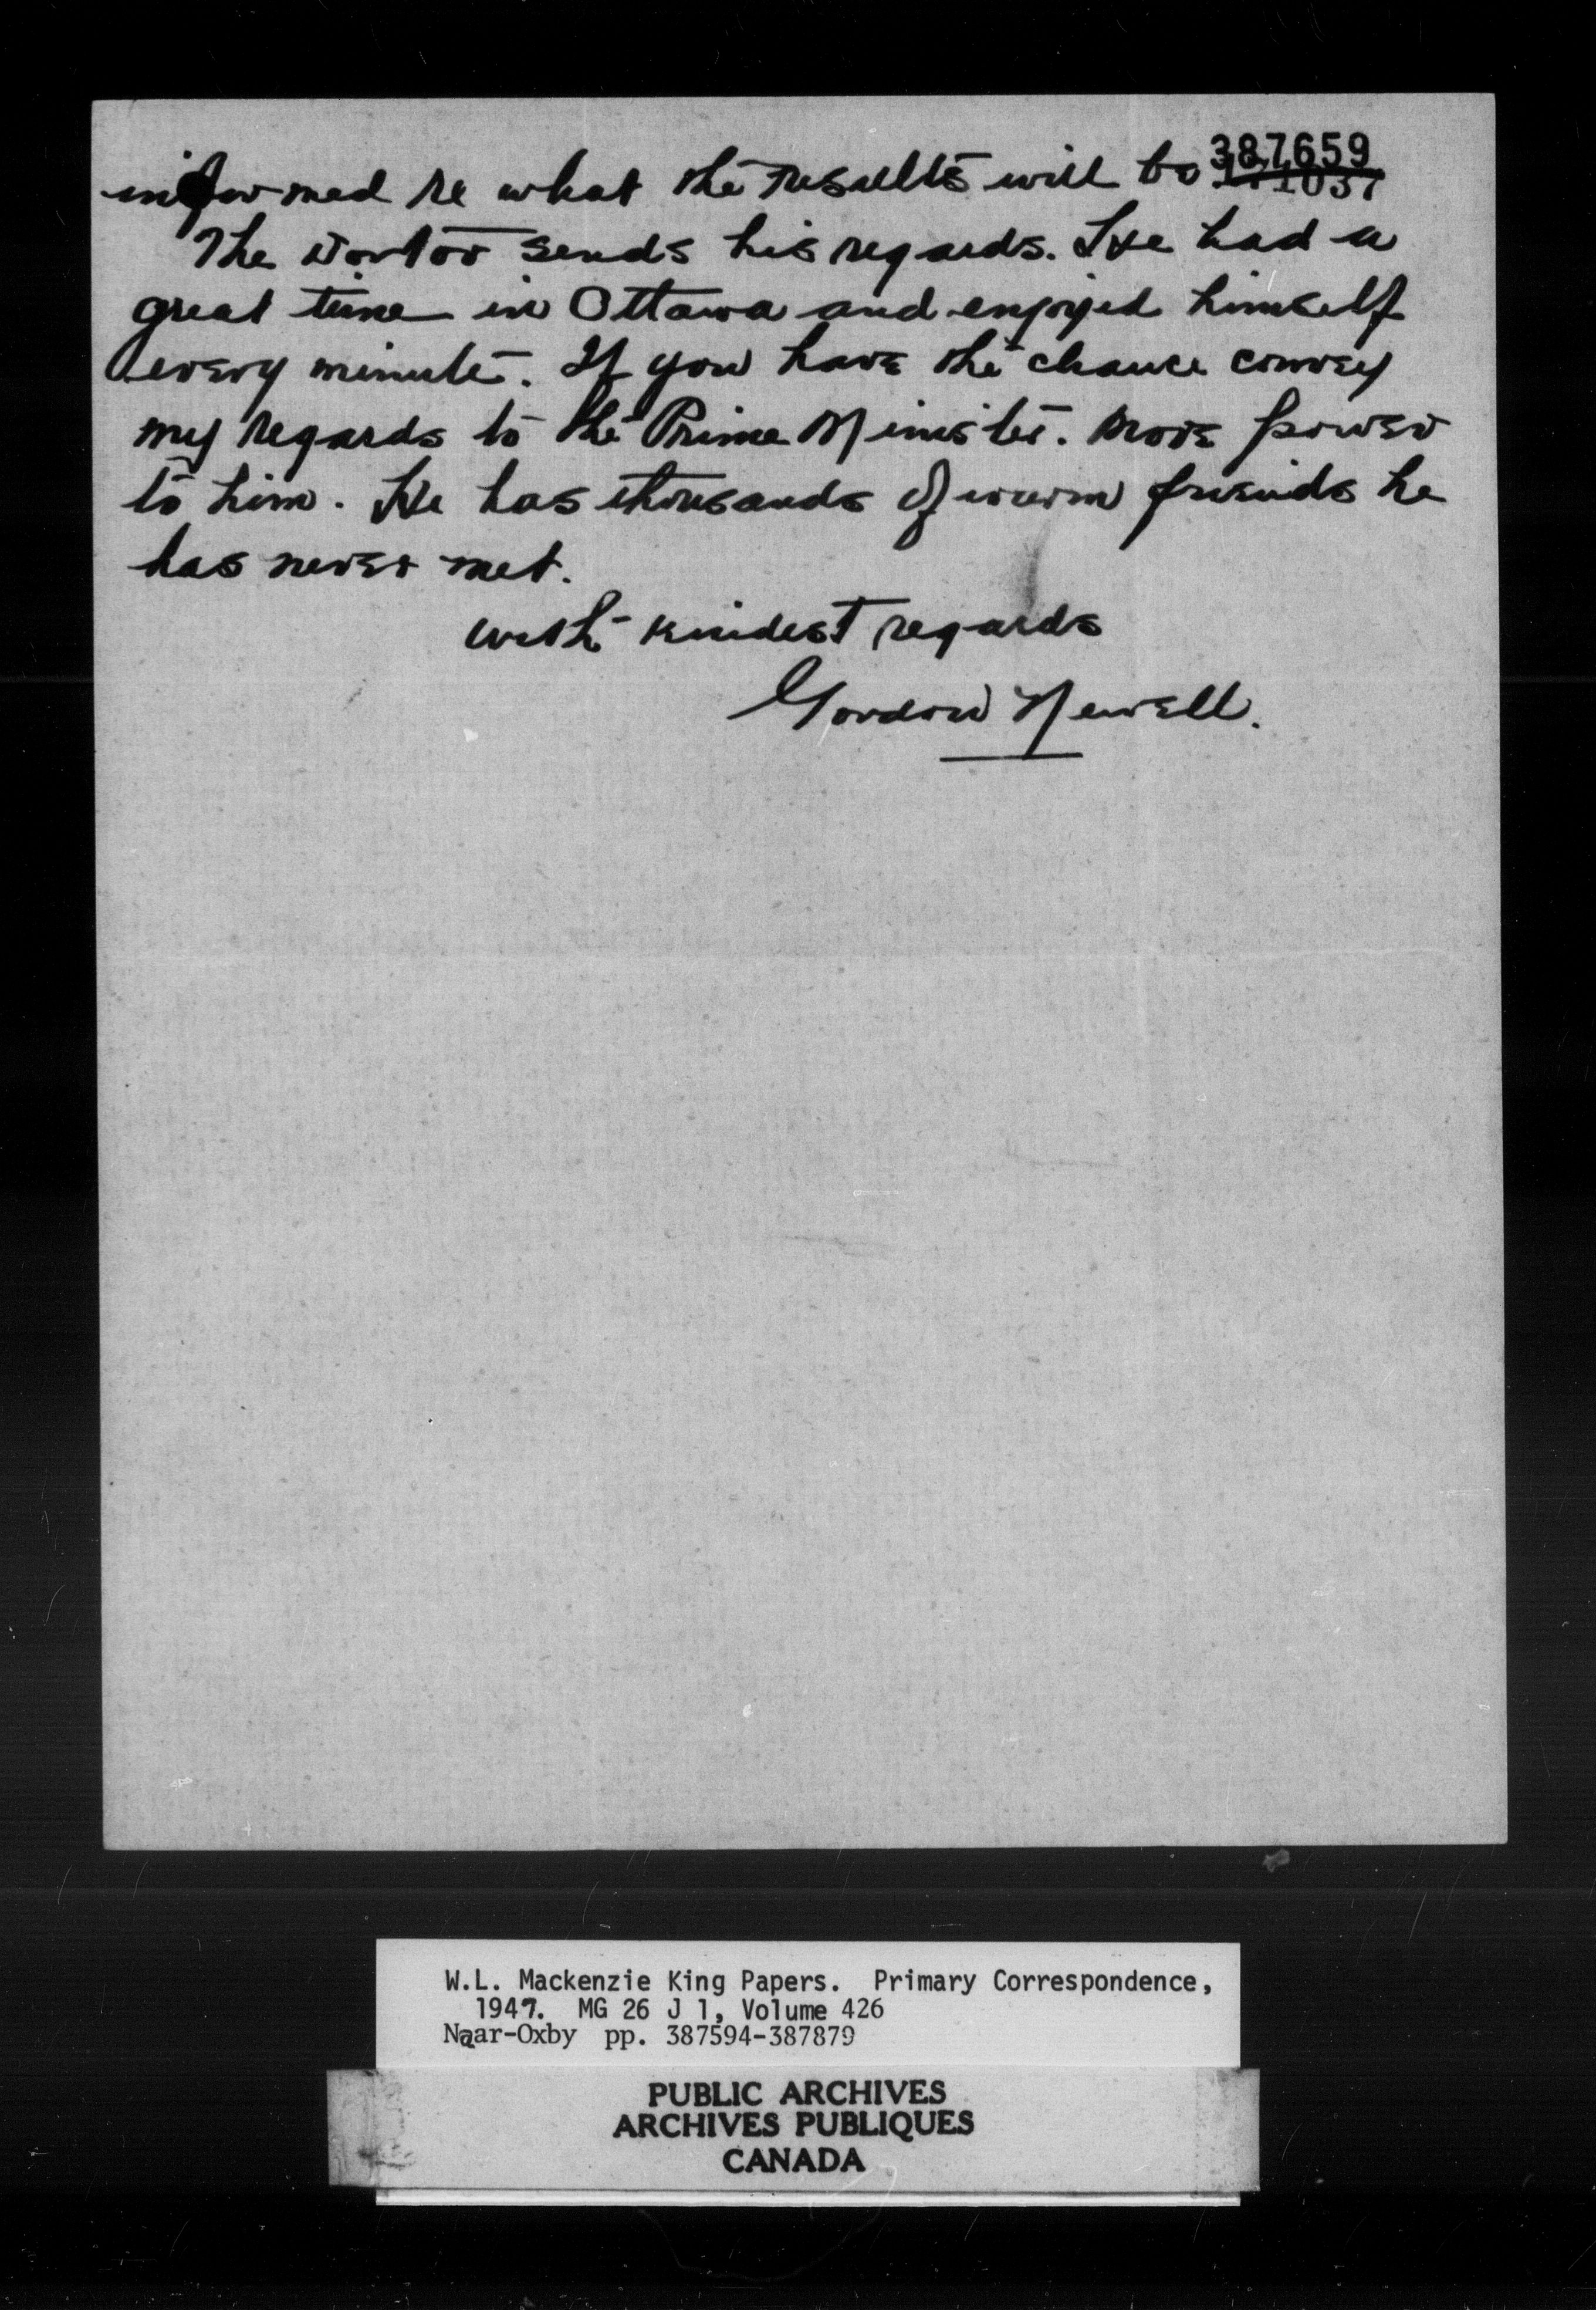 387659
informed re what the results will be
The Doctor sends his regards. He had a
great time in Ottawa and enjoyed himself
every minute. If you have the chance convey
my regards to the Prime Minister. More power
to him. He has thousands of warm friends he
has never met.
with kindest regards
Gordon Newell.
W.L. Mackenzie King Papers. Primary Correspondence,
1947. MG 26 J 1, Volume 426
Naar-Oxby pp. 387594-387879
PUBLIC ARCHIVES
ARCHIVES PUBLIQUES
CANADA